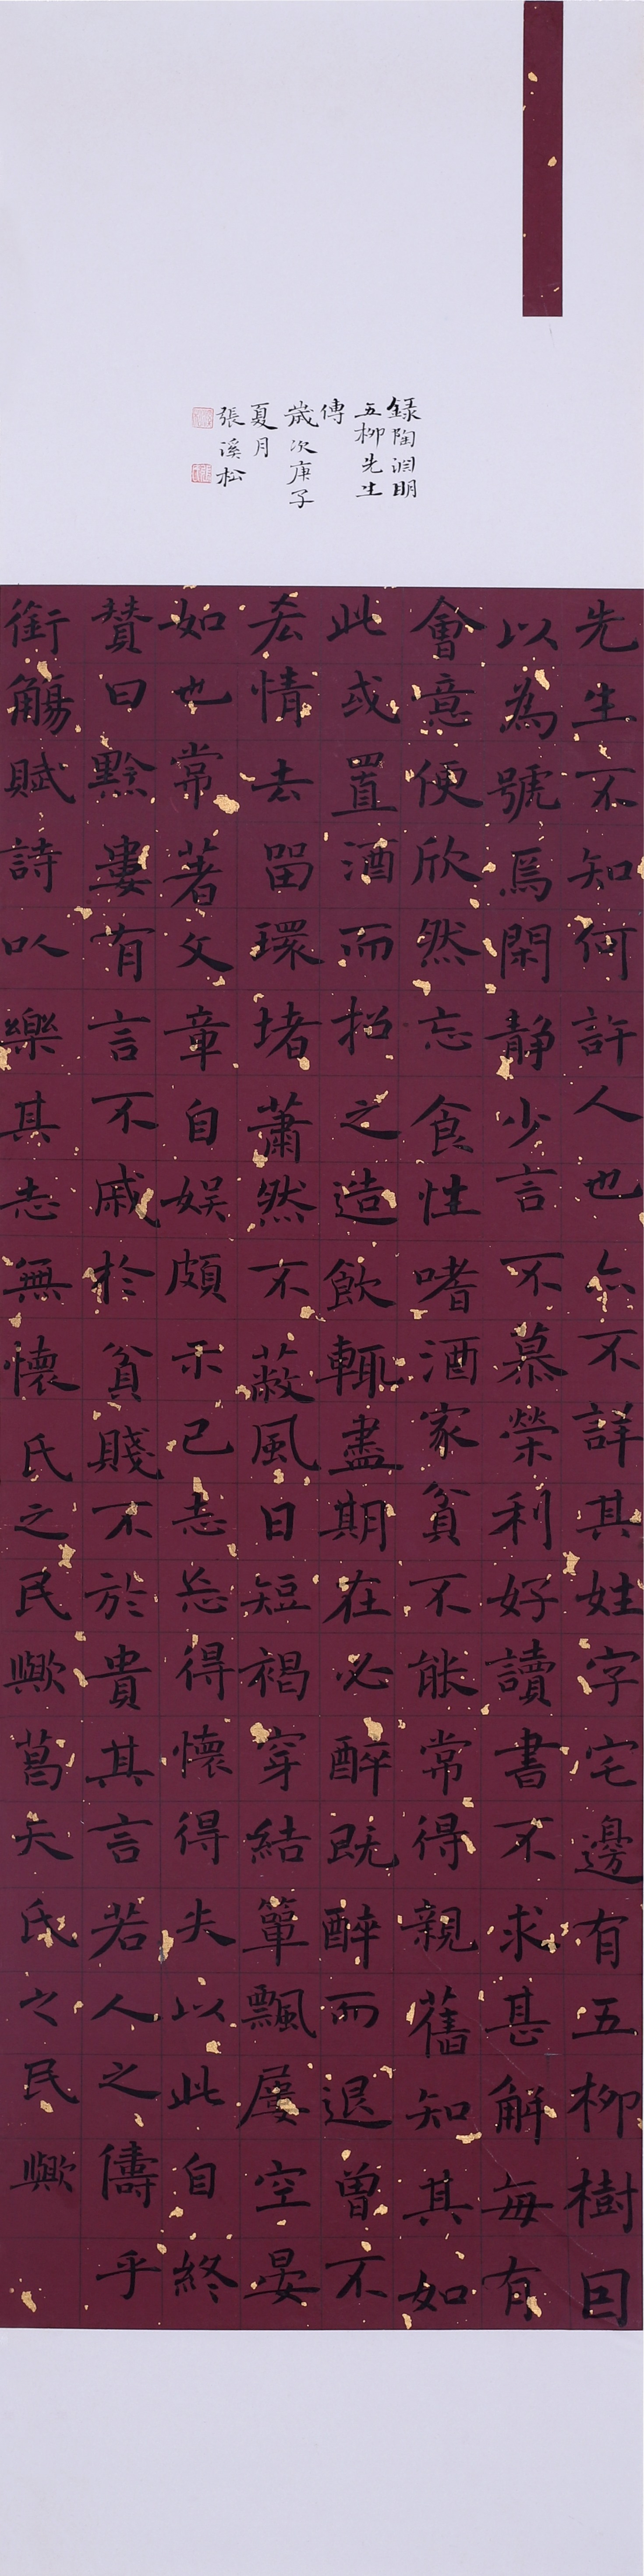 先生不知何許人也亦不詳其姓字宅邊有五柳樹因
以為號焉閑静少言不慕榮利好讀書不求甚解每有
會意便欣然忘食性嗜酒家貧不能常得親舊知其如
此或置酒而招之造飲輒盡期在必醉既醉而退曾不
吝情去留環堵蕭然不蔽風日短褐穿結簞瓢屢空晏
如也常著文章自娛頗示己志忘得懷得失以此自終
贊曰黔婁有言不戚於貧賤不於貴其言若人之儔乎
銜觴賦詩以樂其志無懷氏之民歟葛天氏之民歟
録陶淵明
五柳先生
傳
歲次庚子
夏月
張溪松